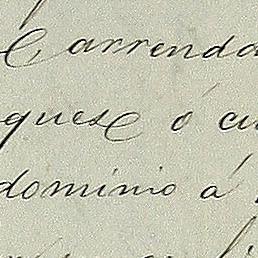 Carrenda
ques ó cu
dominio á